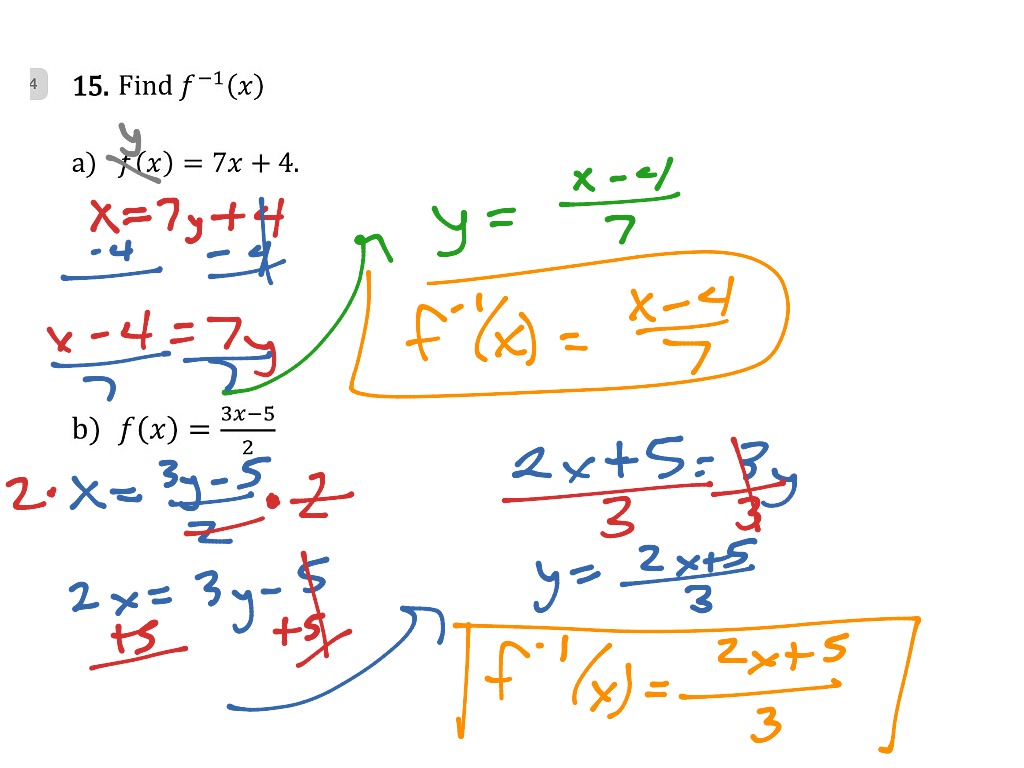 4
15. Find f⁻¹(x)
y
a) f(x) = 7x + 4.
x = 7y + 4
-4 - 4
x - 4 = 7y
7 7
y = x - 4
7
f⁻¹(x) = x - 4
7
b) f(x) = 3x−5
2
2 · x = 3y - 5 · 2
2
2x = 3y - 5
+5 +5
2x + 5 = 3y
3 3
y = 2x+5
3
f⁻¹(x) = 2x+5
3